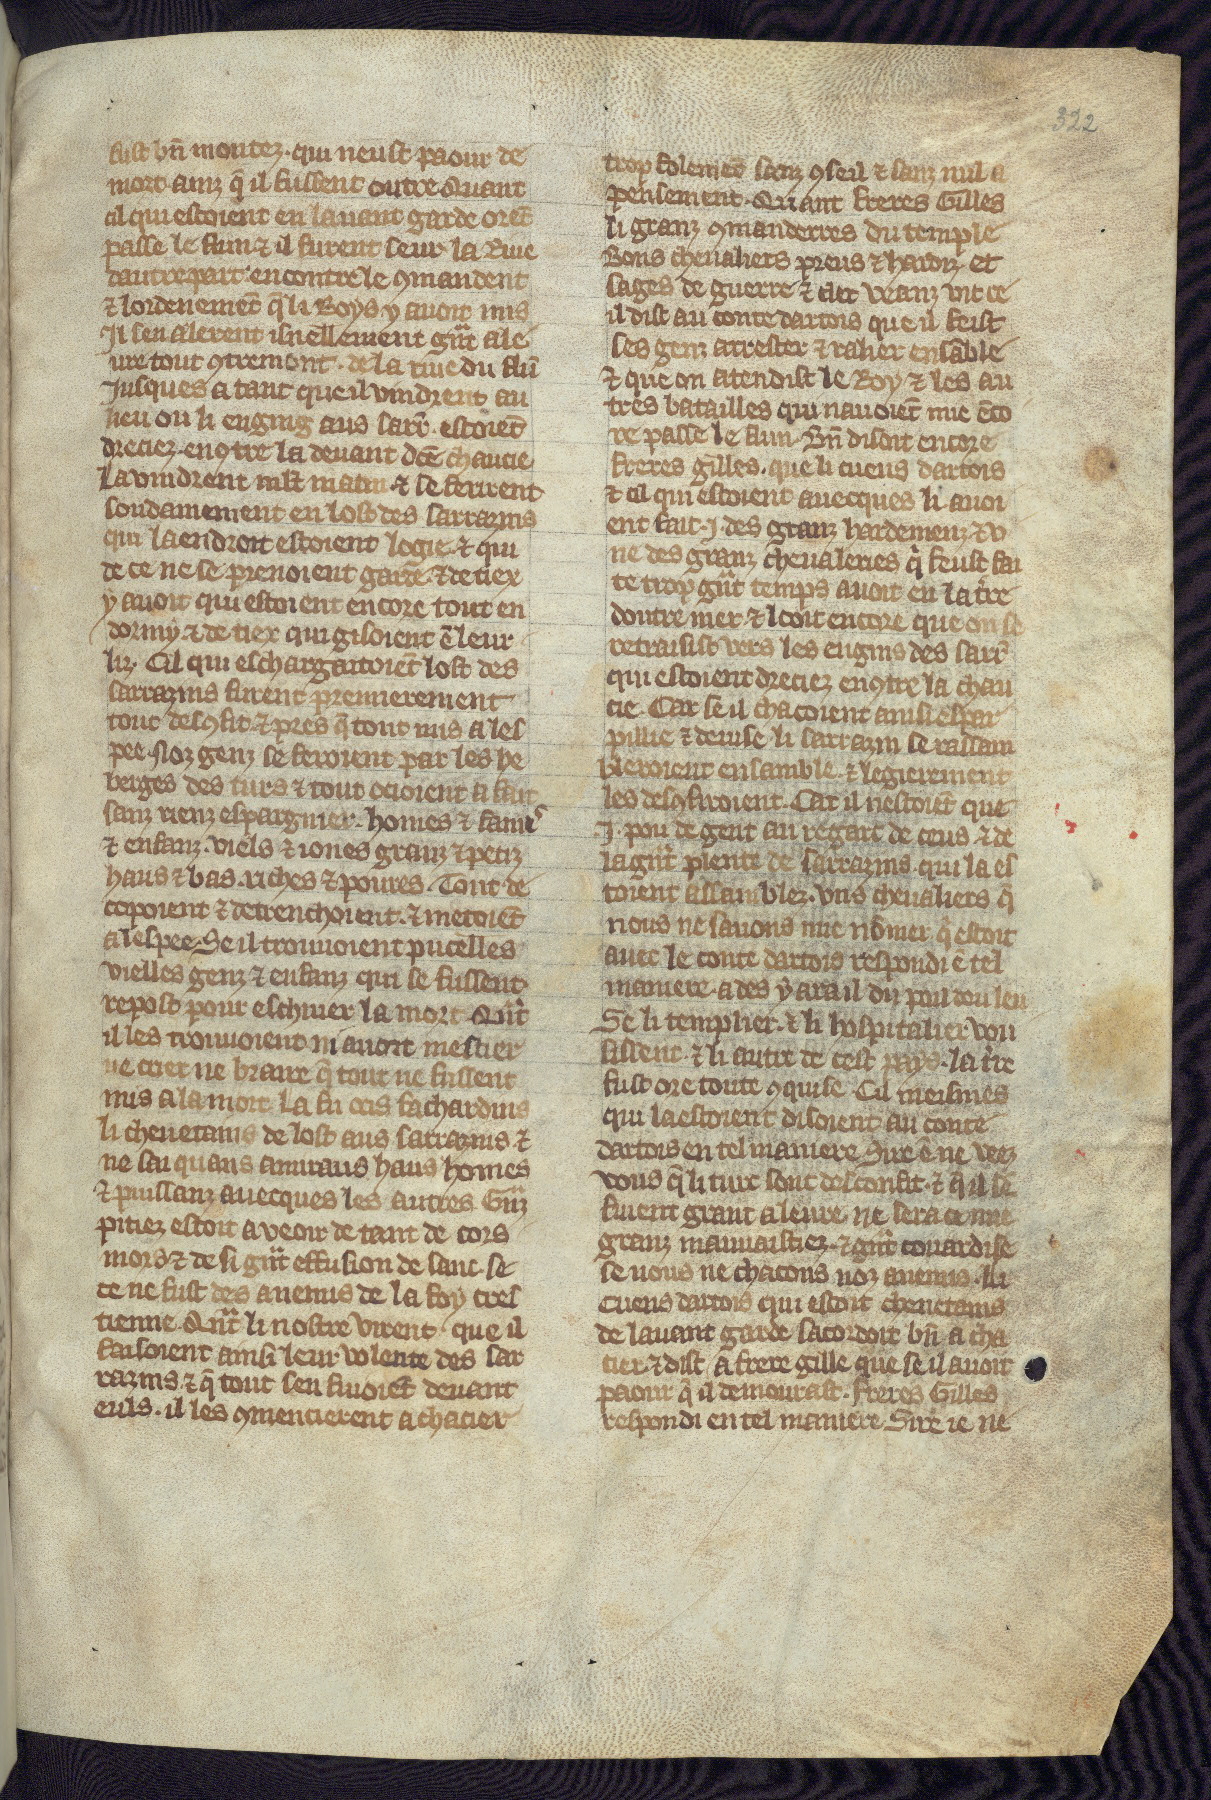 322
fust bñ montez. qui neust paour de
mort ainz q̃ il fussent outre Quant
cil qui estoient en lauant garde orẽt
passe le flun ⁊ il furent seur la Riue
dautrepart encontre le ꝯmandent
⁊ lordenemẽt q̃ li Roys y auoit mis
Il sen alerent isnellement gñt ale
ure tout ꝯtremont. de la riue du flũ
Jusques a tant que il vindrent au
lieu ou li enging aus sarr̃. estoiẽt
dreciez. en ꝯtre la deuant dc̃e chaucie
La vindrent mlt matin ⁊ se ferirent
soudainement en lost des sarrazins
qui la endroit estoient logie. ⁊ qui
de ce ne se prenoient garde. ⁊ de tiex
y auoit qui estoient encore tout en
dormy ⁊ de tiex qui gisoient ẽ leur
liz. Cil qui eschargaitoiẽt lost des
sarrazins furent premierement
tout desꝯfit ⁊ pres q̃ tout mis a les
pee. Noz genz se feroient par les he
berges des turs ⁊ tout ocioient a fait
sanz rienz espargnier. homes ⁊ famẽs
⁊ enfanz. viels ⁊ iones granz ⁊ petiz
haus ⁊ bas. riches ⁊ poures. Tout de
copoient ⁊ detrenchoient. ⁊ metoiẽt
a lespee. Se il trouuoient pucelles
vielles genz ⁊ enfanz qui se fussent
repost pour eschiuer la mort. Qñt
il les trouuoient ni auoit mestier
ne crier ne braire q̃ tout ne fussent
mis a la mort. La fu ocis fachardins
li cheuetains de lost aus sarrazins ⁊
ne sai quans amiraus haus homes
⁊ puissanz auecques les autres. Gñz
pitiez estoit a veoir de tant de cors
mors ⁊ de si gñt effusion de sanc. se
ce ne fust des anemis de la foy cres
tienne. Qñt li nostre virent que il
faisoient ainsi leur volente des sar
razins. ⁊ q̃ tout sen fuioiẽt deuant
euls. il les ꝯmencierent a chacier
trop folemẽt sanz ꝯseil ⁊ sanz nul a
pensement. Quant freres Gilles
li granz ꝯmanderres du temple
Bons cheualiers preus ⁊ hardiz. et
sages de guerre ⁊ cler veanz vit ce
il dist au conte dartois que il feist
ses genz arrester ⁊ ralier ensãble
⁊ que on atendist le Roy ⁊ les au
tres batailles qui nauoiẽt mie ẽco
re passe le flun. Bñ disoit encore
freres gilles. que li cuens dartois
⁊ cil qui estoient auecques li auoi
ent fait .j. des granz hardemenz. ⁊ v
ne des granz cheualeries q̃ feust fai
te trop gñt temps auoit en la tr̃re
doutre mer. ⁊ looit encore que on se
retraisist vers les engins des sarr̃
qui estoient dreciez en ꝯtre la chau
cie. Car se il chacoient ainsi espar
pillie ⁊ deuise li sarrazin se rassam
bleroient ensamble. ⁊ legierement
les desꝯfiroient. Car il nestoiẽt que
.j. pou de gent au regart de ceus ⁊ de
la gñt plente de sarrazins. qui la es
toient assamblez. Vns cheualiers q̃
nous ne sauons mie nõmer q̃ estoit
auec le conte dartois respondi ẽ tel
maniere. ades y ara il du poil dou leu
Se li templier. ⁊ li hospitalier vou
sissent. ⁊ li autre de cest pays. la tr̃re
fust ore toute ꝯquise. Cil meismes
qui la estoient disoient au conte
dartois en tel maniere. Sire ẽ ne veez
vous q̃ li turc sont desconfit. ⁊ q̃ il sẽ
fuient grant aleure. ne sera ce mie
granz mauuaistiez. ⁊ gñt couardise
se nous ne chacons noz anemis. Li
cuens dartois qui estoit cheuetains
de lauant garde sacordoit bñ a cha
cier. ⁊ dist a frere gille que se il auoit
paour q̃ il demourast. Freres Gilles
respondi en tel maniere. Sire ie ne